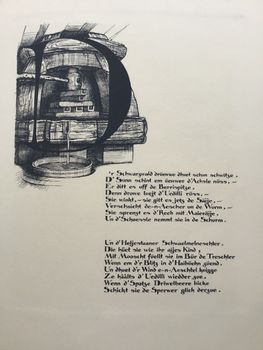 'r Schwarzwald drüewe dhuet schn schwitze.
D' Sunn schint em üewer d'Achsle nüss, —
Er ditt es uff de Berrispitze,
Denn drowe lueit d'Uedilli rüss, —
Sie winkt, — sie gitt es jets de Säije,
Verschücht de-n-Aescher un de Wurm,
Sie sprengt es d'Rech mit Maieräije
Un d'Schnessle nemmt sie in de Schurm.
Un d'Heffentzaner Schwaelmelneschter
Die hüet sie wie ihr aijes Kind,
Mit Mooscht füellt sie im Bür de Treschter
Wenn em d'r Blitz in d'Haihiehn zind.
Un dhuet d'r Wind e-n-Aeschtel knigge
Ze hailts d'Uedilli wiedder zue,
Wenn d'Spatze Driwelbeere bicke
Schickt sie de Sperwer glich derzue.